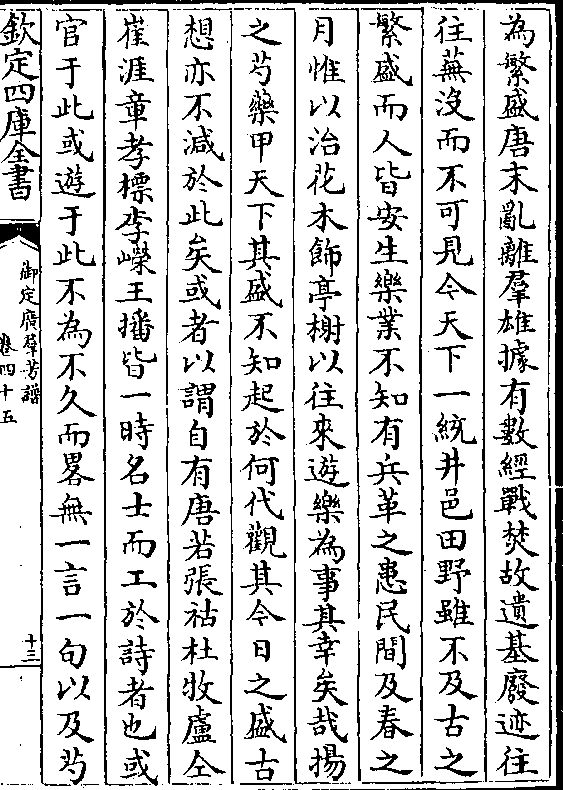 為繁盛唐末亂離羣雄據有數經戰焚故遺基廢迹往
往蕪没而不可見今天下一統井邑田野雖不及古之
繁盛而人皆安生樂業不知有兵革之患民間及春之
月惟以治花木飾亭榭以往來遊樂為事其幸矣哉揚
之芍藥甲天下其盛不知起於何代觀其今日之盛古
想亦不減於此矣或者以謂自有唐若張祜杜牧盧仝
崔涯章孝標李嶸王播皆一時名士而工於詩者也或
官于此或遊于此不為不久而畧無一言一句以及芍
欽定四庫全書
御定廣羣芳譜
卷四十五
十三